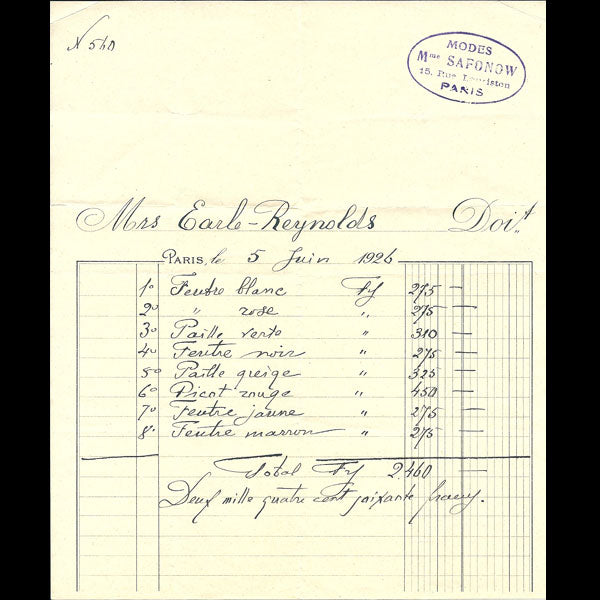 N 540
MODES
Mme SAFONOW
15, Rue Lauriston
PARIS
Mrs Earle-Reynolds Doit
PARIS, le 5 Juin 1926
1º Feutre blanc Fs 275 —
2º " rose " 275 —
3º Paille verte " 310 —
4º Feutre noir " 275 —
5º Paille greige " 325 —
6º Picot rouge " 450 —
7º Feutre jaune " 275 —
8º Feutre marron " 275 —
Total Fs 2.460 —
Deux mille quatre cent soixante francs.